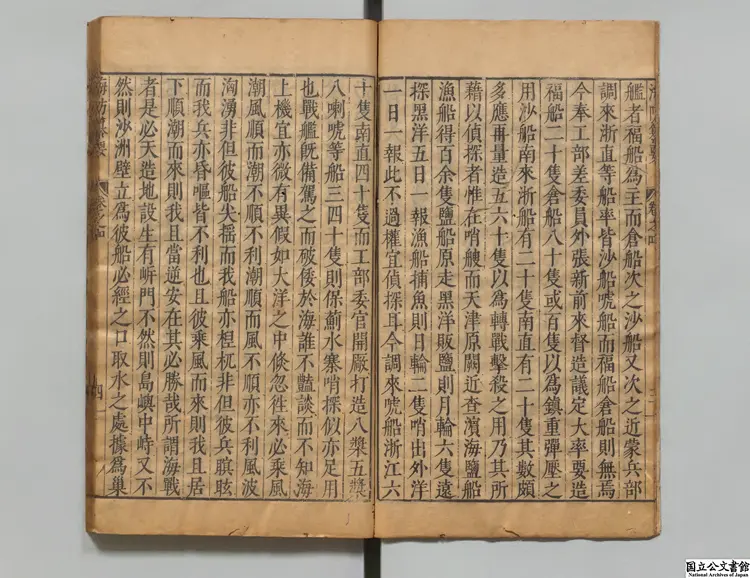 艦者福船爲主而倉船次之沙船又次之近蒙兵部
調來浙直等船率皆沙船唬船而福船倉船則無焉
今奉工部差委員外張新前來督造議定大率要造
福船二十隻倉船八十隻或百隻以爲鎮重彈壓之
用沙船南來浙船有二十隻南直有二十隻其數頗
多應再量造五六十隻以爲轉戰擊殺之用乃其所
藉以偵探者惟在哨艘而天津原闕近查濵海鹽船
漁船得百余隻鹽船原走黑洋販鹽則月輪六隻遠
探黑洋五日一報漁船捕魚則日輪二隻哨出外洋
一日一報此不過權宜偵探耳今調來唬船浙江六
十隻南直四十隻而工部委官開厰打造八槳五槳
八喇唬等船三四十隻則保薊水寨哨探似亦足用
也戰艦既備駕之而破倭於海誰不豔談而不知海
上機宜亦微有異假如大洋之中倐忽徃來必乘風
潮風順而潮不順不利潮順而風不順亦不利風波
洶湧非但彼船失摇而我船亦杌非但彼兵瞑眩
而我兵亦昏嘔皆不利也且彼乘風而來則我且居
下順潮而來則我且當逆安在其必勝哉所謂海戰
者是必天造地設生有㟁門不然則島嶼中峙又不
然則沙洲壁立爲彼船必經之口取水之處據爲巢
海防纂要
卷之四
四
国立公文書館
National Archives of Japan